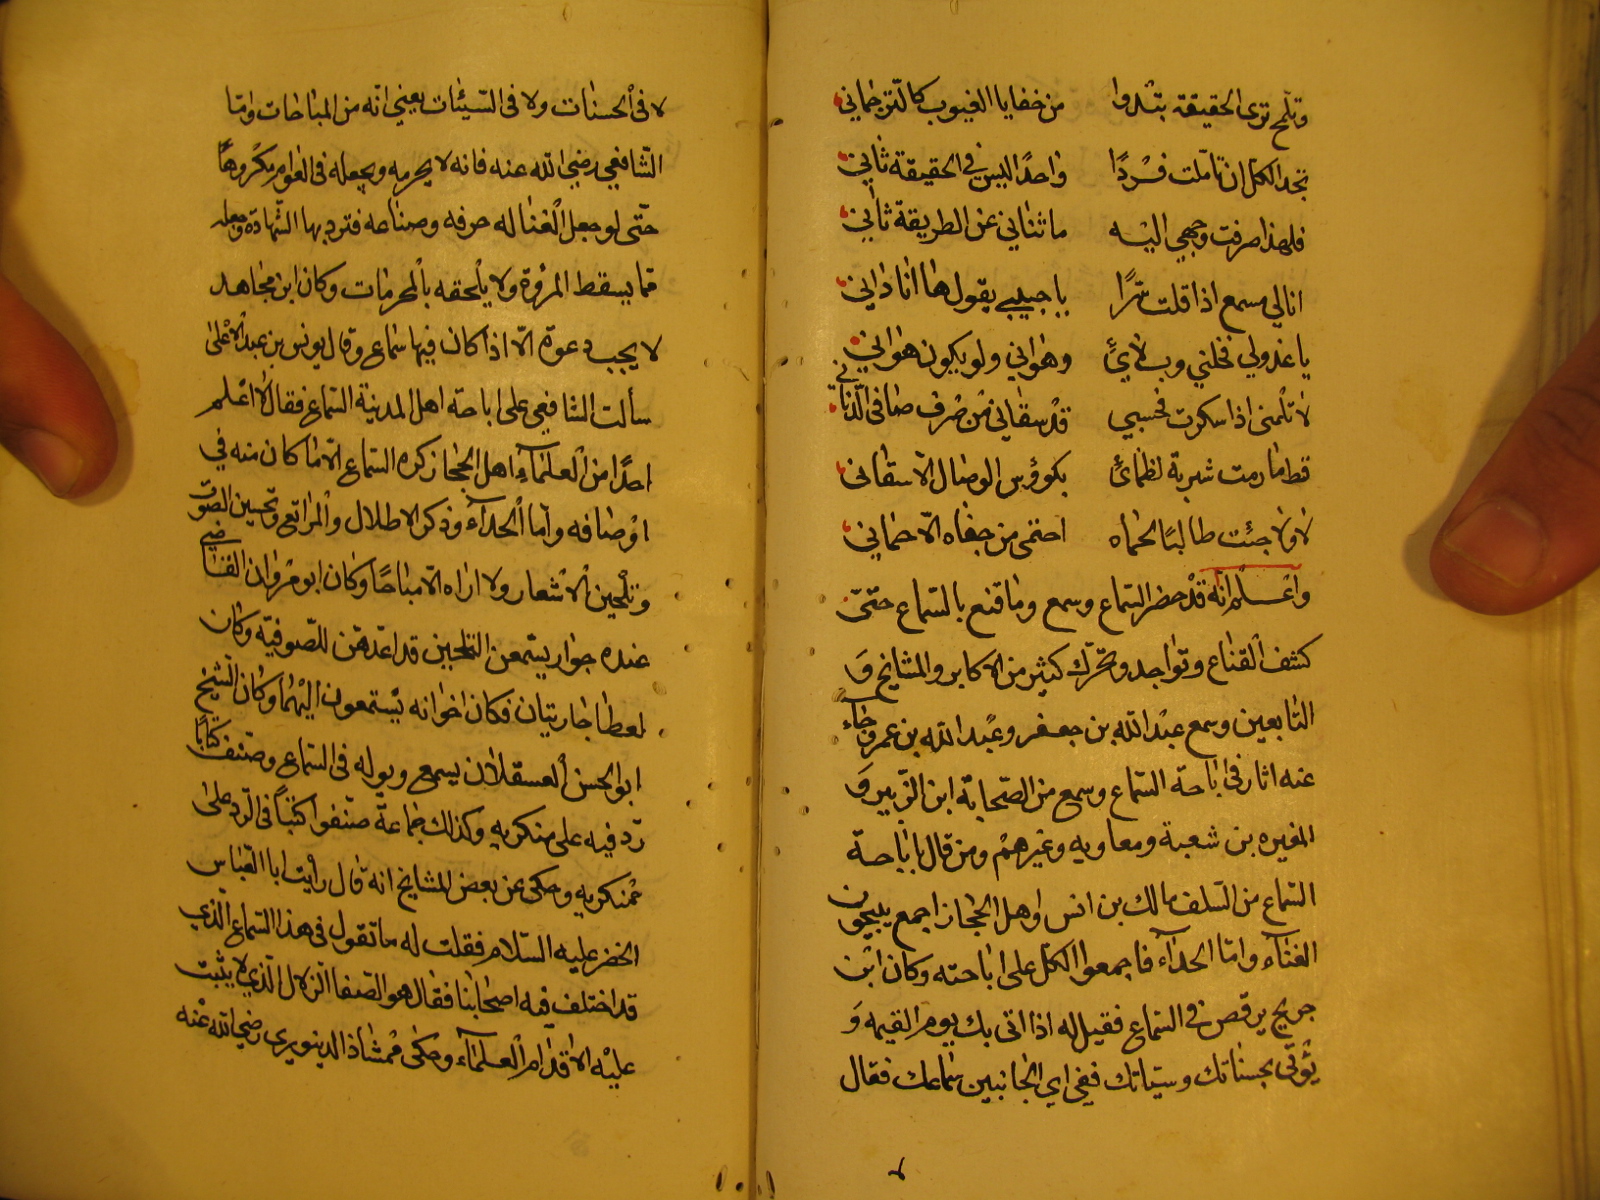 وتلمح ترى الحقيقة بتدوا من خفايا الغيوب كالترجماني
تجد الكل ان تاملت فردًا واحدًا ليس في الحقيقة ثاني
فلهذا صرفت وجهي اليه ما ثناني عن الطريقة ثاني
انا لي مسمع اذا قلت سرًا يا حبيبي يقول ها انا داني
يا عذولي فخلني وبلائ وهواني ولو يكون هواني
لا تلمنى اذا سكرت فحسبي قد سقاني من صرف صافي الدنان
قط ما رمت شربة لظمائ بكوؤس الوصال الا سقاني
لا ولا جئت طالبًا لحماه احتمى من جفاه الا حماني
واعلم انه قد حضر السماع وسمع وما قنع بالسماع حتى
كشف القناع وتواجد وتحرك كثير من الاكابر والمشايخ و
التابعين وسمع عبد الله بن جعفر وعبد الله بن عمر وجاء
عنه اثار في اباحة السماع وسمع من الصحابة ابن الزبير و
المغيره بن شعبة ومعاويه وغيرهم ومن قال باباحة
السماع من السلف مالك بن انس واهل الحجاز اجمع يبيحون
الغناء واما الحداء فاجمعوا الكل على اباحته وكان ابن
جريج يرقص في السماع فقيل له اذا اتى بك يوم القيمه و
يؤتى بحسناتك وسيئاتك ففي اي الجانبين سماعك فقال
لا
لا في الحسنات ولا في السيئات يعني انه من المباحات واما
الشافعي رضي الله عنه فانه لا يحرمه ويجعله في العوام مكروهًا
حتى لو جعل الغنا له حرفه وصناعه فترد بها الشهادة ويجعله
مما يسقط المرؤة ولا يلحقه بالمحرمات وكان ابن مجاهد
لا يجب دعوة الا اذا كان فيها سماع وقال يونس بن عبد الاعلى
سألت الشافعي على اباحة اهل المدينة السماع فقال لا اعلم
احدًا من العلماء اهل الحجاز كره السماع الا ما كان منه في
اوصافه واما الحداء وذكر الاطلال والمراتع وتحسين الصوت
وتلحين الاشعار ولا اراه الا مباحًا وكان ابو مروان القاضي
عنده جوار يستمعن التلحين قد اعدهن للصوفيه وكان
لعطا جاريتان فكان اخوانه يستمعون اليهما وكان الشيخ
ابو الحسن العسقلان يسمع ويوله في السماع وصنف كتابًا
رد فيه على منكريه وكذلك جماعة صنفوا كتبًا في الرد على
منكريه وحكى عن بعض المشايخ انه قال رأيت ابا العباس
الخضر عليه السلام فقلت له ما تقول في هذا السماع الذي
قد اختلف فيه اصحابنا فقال هو الصفا الزلال الذي لا يثبت
عليه الا اقدام العلماء وحكى ممشاذ الدينوري رضي الله عنه